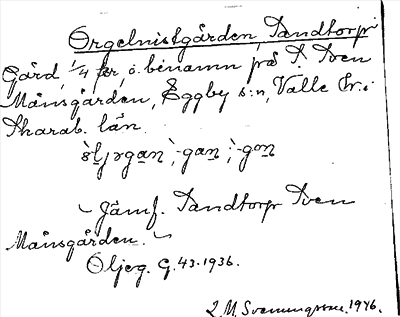 Orgelnistgården, Tandtorp
Gård, 1/4 kr, o. binamn på T. Sven
Månsgården, Eggby s:n, Valle hr. i
Skarab. län.
-gan, -gon
Jämf. Tandtorp Sven
Månsgården.
Oljeg. G. 43. 1936.
L. M. Svenungsson. 1946.